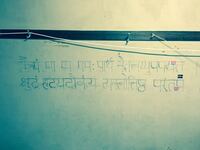 क्लैब्यं मा स्म गमः पार्थ नैतत्त्वय्युपपद्यते
क्षुद्रं हृदयदौर्बल्यं त्यक्त्वोत्तिष्ठ परंतप